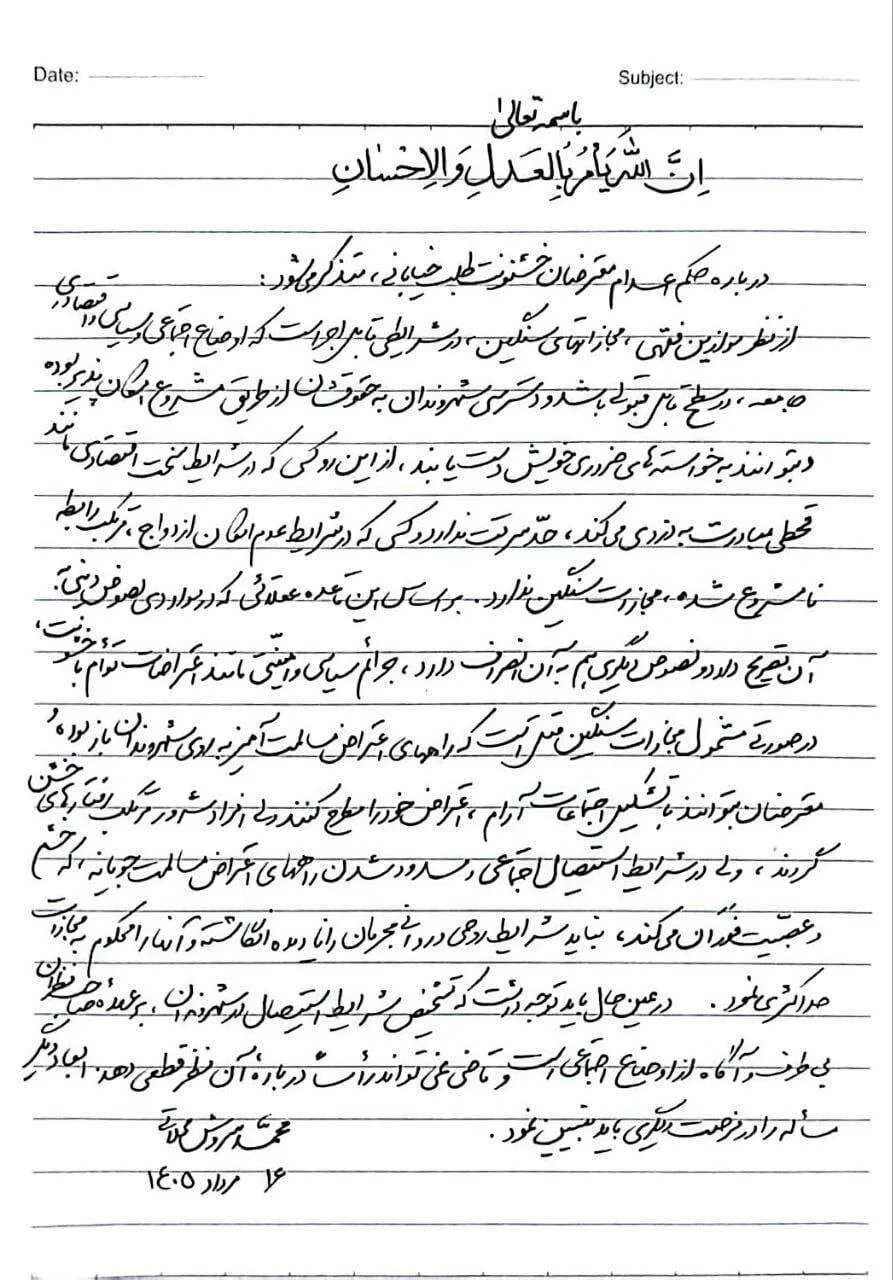 Date:
Subject:
باسمه تعالی
اِنَّ اللّهَ یَأمُرُ بِالعَدلِ وَ الاِحسٰانِ
درباره حکم اعدام معترضان خشونت طلب خیابانی، متذکر می‌شود:
از نظر موازین فقهی، مجازاتهای سنگین، در شرایطی قابل اجراست که اوضاع اجتماعی و سیاسی و اقتصادی
جامعه، در سطح قابل قبولی باشد و دسترسی شهروندان به حقوقشان از طریق مشروع امکان پذیر بوده
و بتوانند به خواسته‌های ضروری خویش دست یابند، از این رو کسی که در شرایط سخت اقتصادی مانند
قحطی مبادرت به دزدی می‌کند، حدّ سرقت ندارد و کسی که در شرایط عدم امکان ازدواج، مرتکب رابطه
نامشروع شده، مجازات سنگین ندارد. بر اساس این قاعده عقلائی که در مواردی نصوص دینی به
آن تصریح دارد و نصوص دیگری هم به آن انصراف دارد، جرائم سیاسی و امنیّتی مانند اعتراضات توأم با خشونت،
در صورتی مشمول مجازات سنگین قتل است که راههای اعتراض مسالمت آمیز به روی شهروندان باز بوده و
معترضان بتوانند با تشکیل اجتماعات آرام، اعتراض خود را مطرح کنند ولی افراد شرور مرتکب رفتارهای خشن
گردند، ولی در شرایط استیصال اجتماعی و مسدود شدن راههای اعتراض مسالمت جویانه، که خشم
و عصبیّت فوَران می‌کند، نباید شرایط روحی و روانی مجرمان را نادیده انگاشته و آنها را محکوم به مجازات
حداکثری نمود. در عین حال باید توجه داشت که تشخیص شرایط استیصال در شهروندان، بر عهدهٔ صاحبنظران
بی طرف و آگاه از اوضاع اجتماعی است و قاضی نمی تواند رأساً دربارهٔ آن نظر قطعی دهد. ابعاد دیگر
مسأله را در فرصت دیگری باید تبیین نمود.
محمد سروش محلاتی
۱۶ مرداد ۱۴۰۵